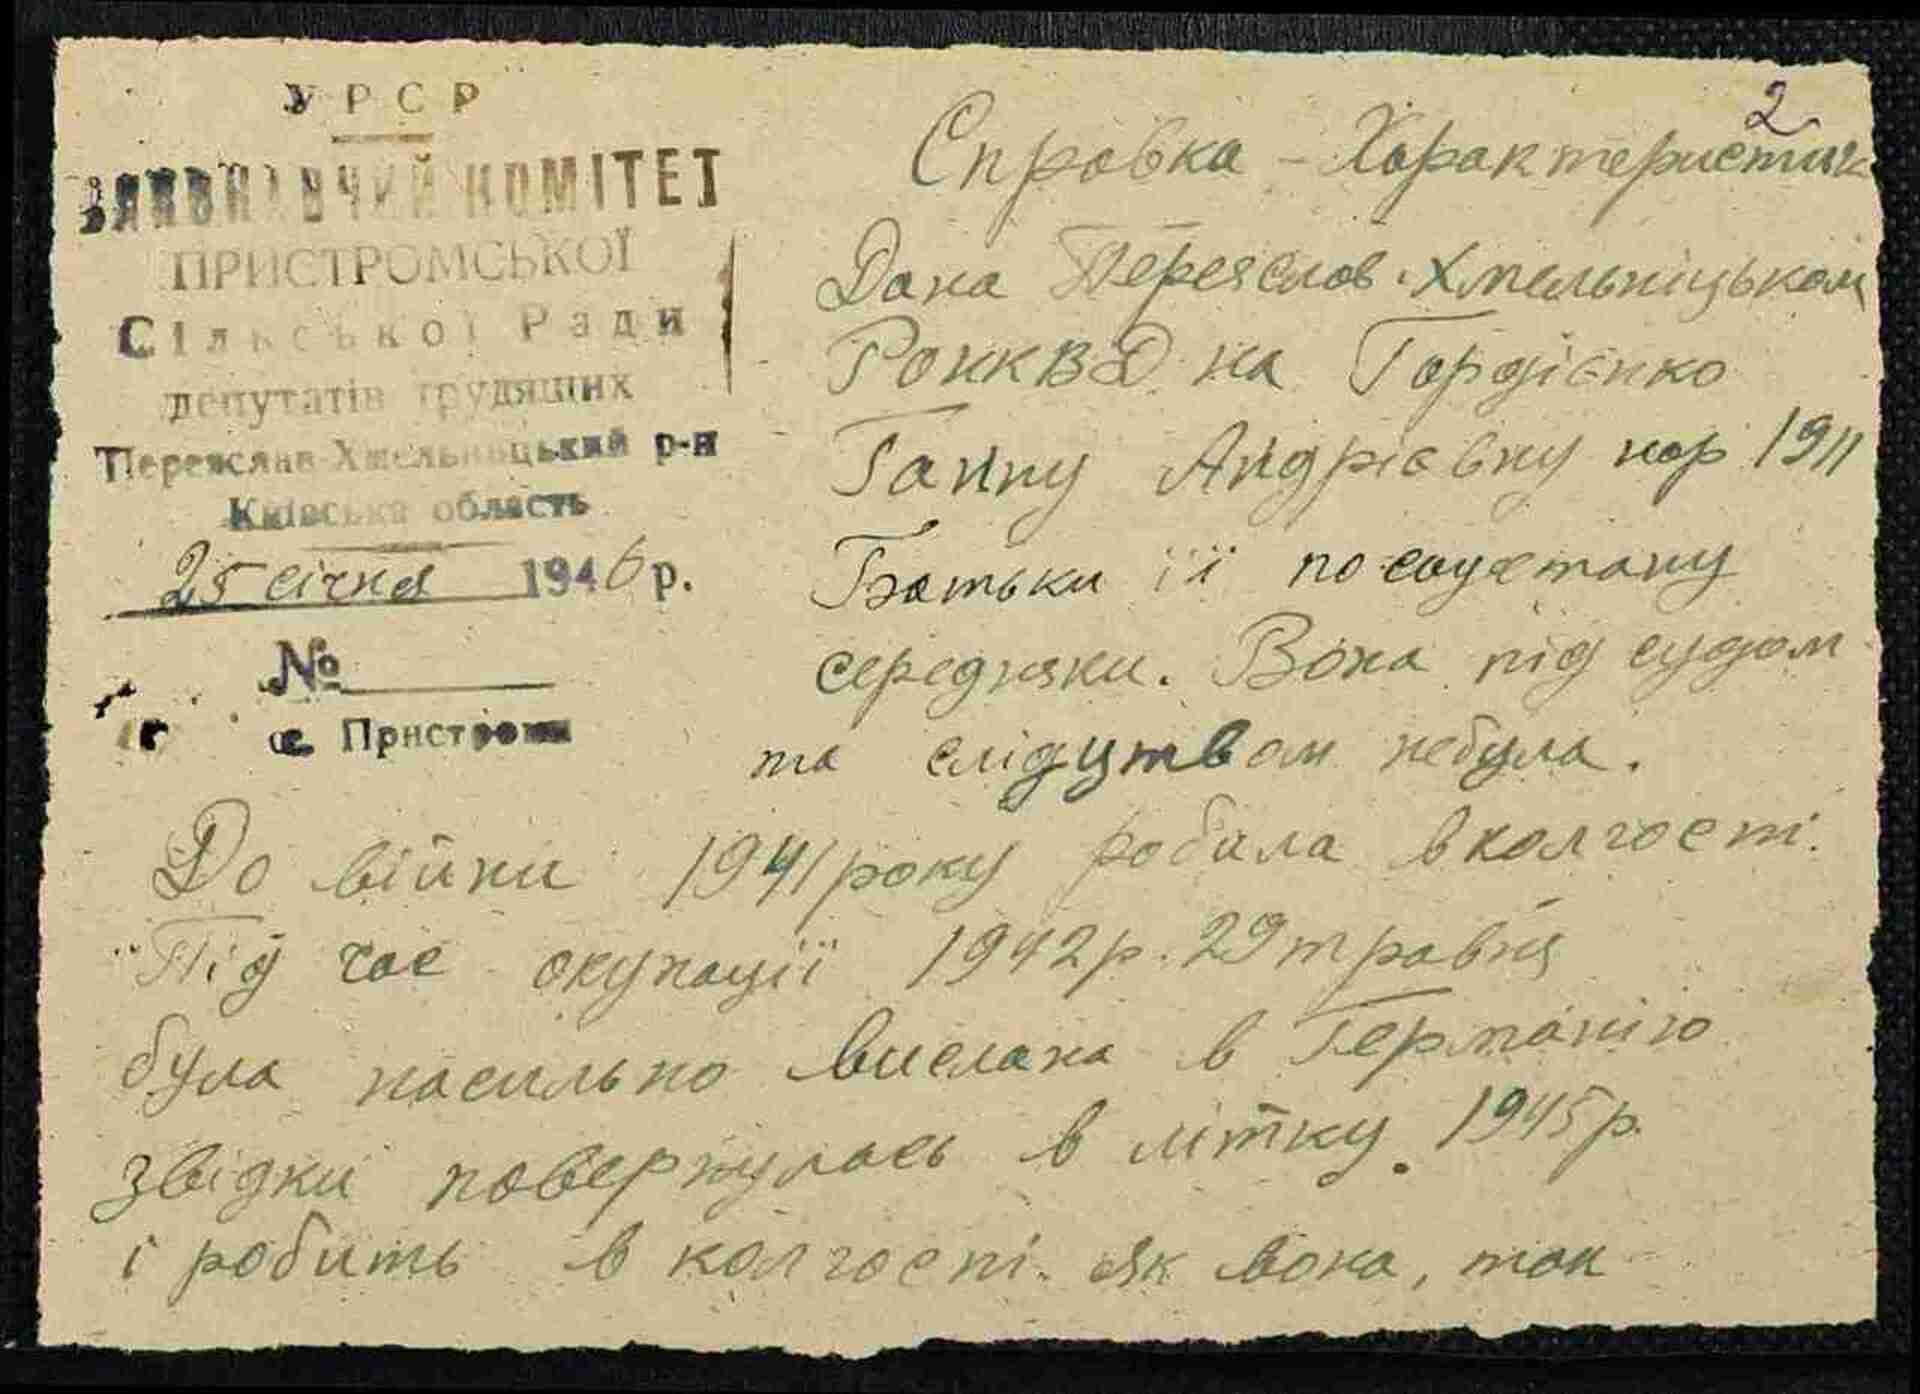 УРСР
ВИКОНАВЧИЙ КОМІТЕТ
ПРИСТРОМСЬКОЇ
Сільської Ради
депутатів трудящих
Переяслав-Хмельницький р-н
Київська область
25 січня 1946 р.
№
с. Пристроми
2
Справка - Характеристик
Дана Переяслов-Хмельніцьком
РОНКВД на Гордієнко
Ганну Андрієвну нар 1911
Батьки її по соцстану
середняки. Вона під судом
та слідцтвом небула.
До війни 1941 року робила вколгоспі.
Під час окупації 1942р. 29 травня
була насильно вислана в Германію
звідки повернулась в літку 1945р.
і робить в колгоспі. як вона, так